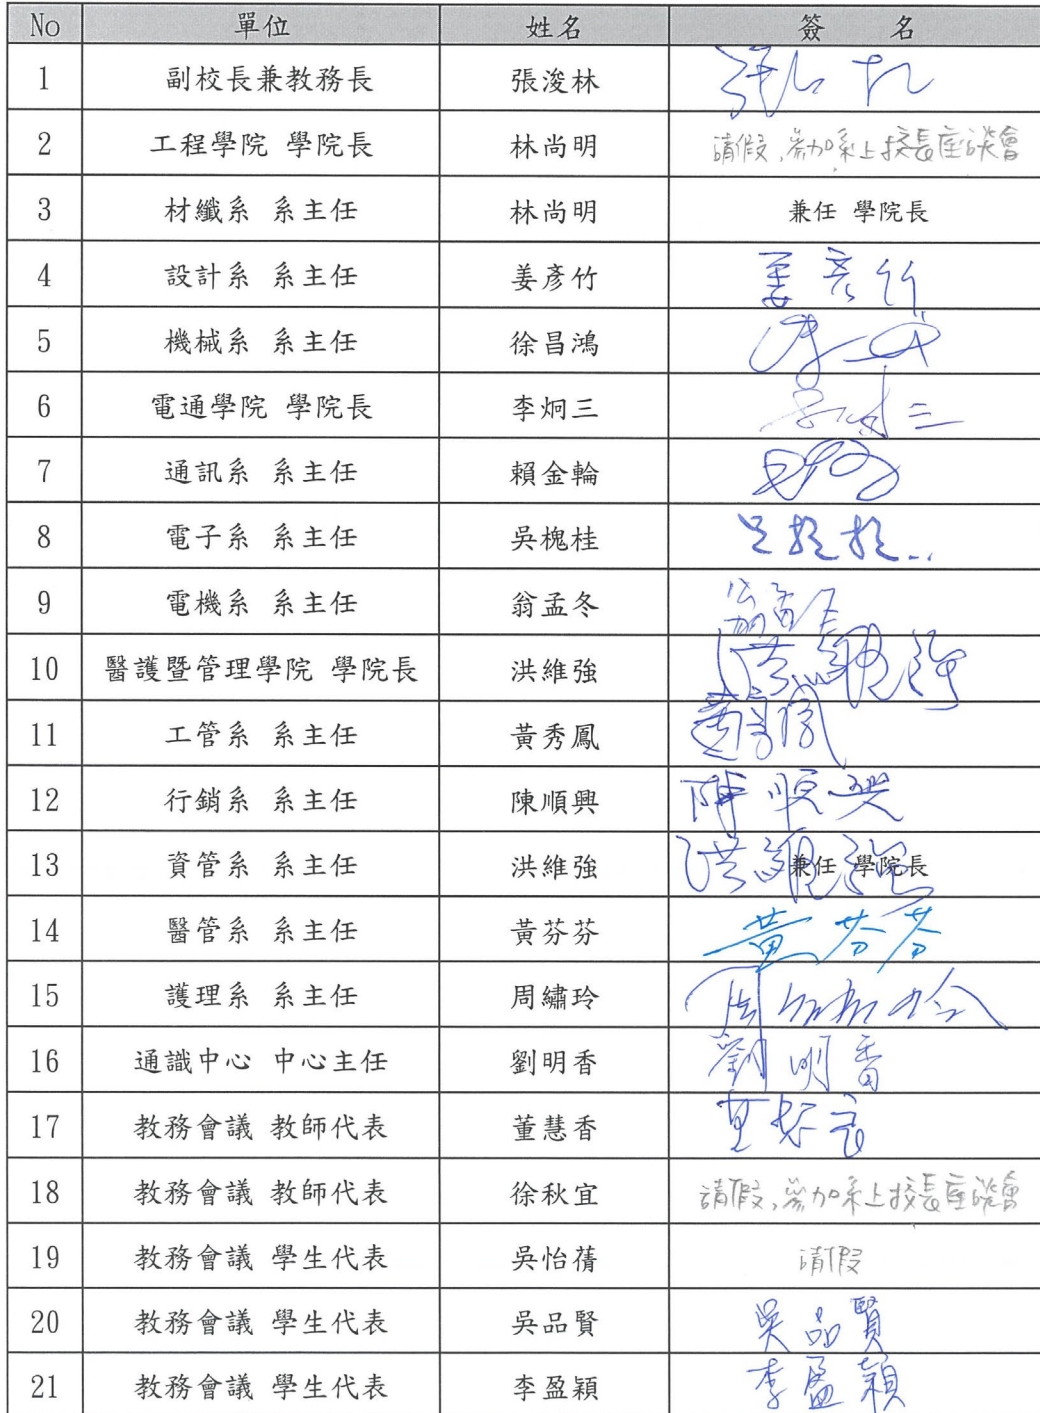 No 單位 姓名 簽 名
1 副校長兼教務長 張浚林
2 工程學院 學院長 林尚明 請假,參加系上校長座談會
3 材纖系 系主任 林尚明 兼任 學院長
4 設計系 系主任 姜彥竹 姜彥竹
5 機械系 系主任 徐昌鴻
6 電通學院 學院長 李炯三
7 通訊系 系主任 賴金輪
8 電子系 系主任 吳槐桂
9 電機系 系主任 翁孟冬 翁孟冬
10 醫護暨管理學院 學院長 洪維強 洪維強
11 工管系 系主任 黃秀鳳 黃秀鳳
12 行銷系 系主任 陳順興 陳順興
13 資管系 系主任 洪維強 洪維強 兼任 學院長
14 醫管系 系主任 黃芬芬 黃芬芬
15 護理系 系主任 周繡玲 周繡玲
16 通識中心 中心主任 劉明香 劉明香
17 教務會議 教師代表 董慧香
18 教務會議 教師代表 徐秋宜 請假,參加系上校長座談會
19 教務會議 學生代表 吳怡蒨 請假
20 教務會議 學生代表 吳品賢 吳品賢
21 教務會議 學生代表 李盈穎 李盈穎